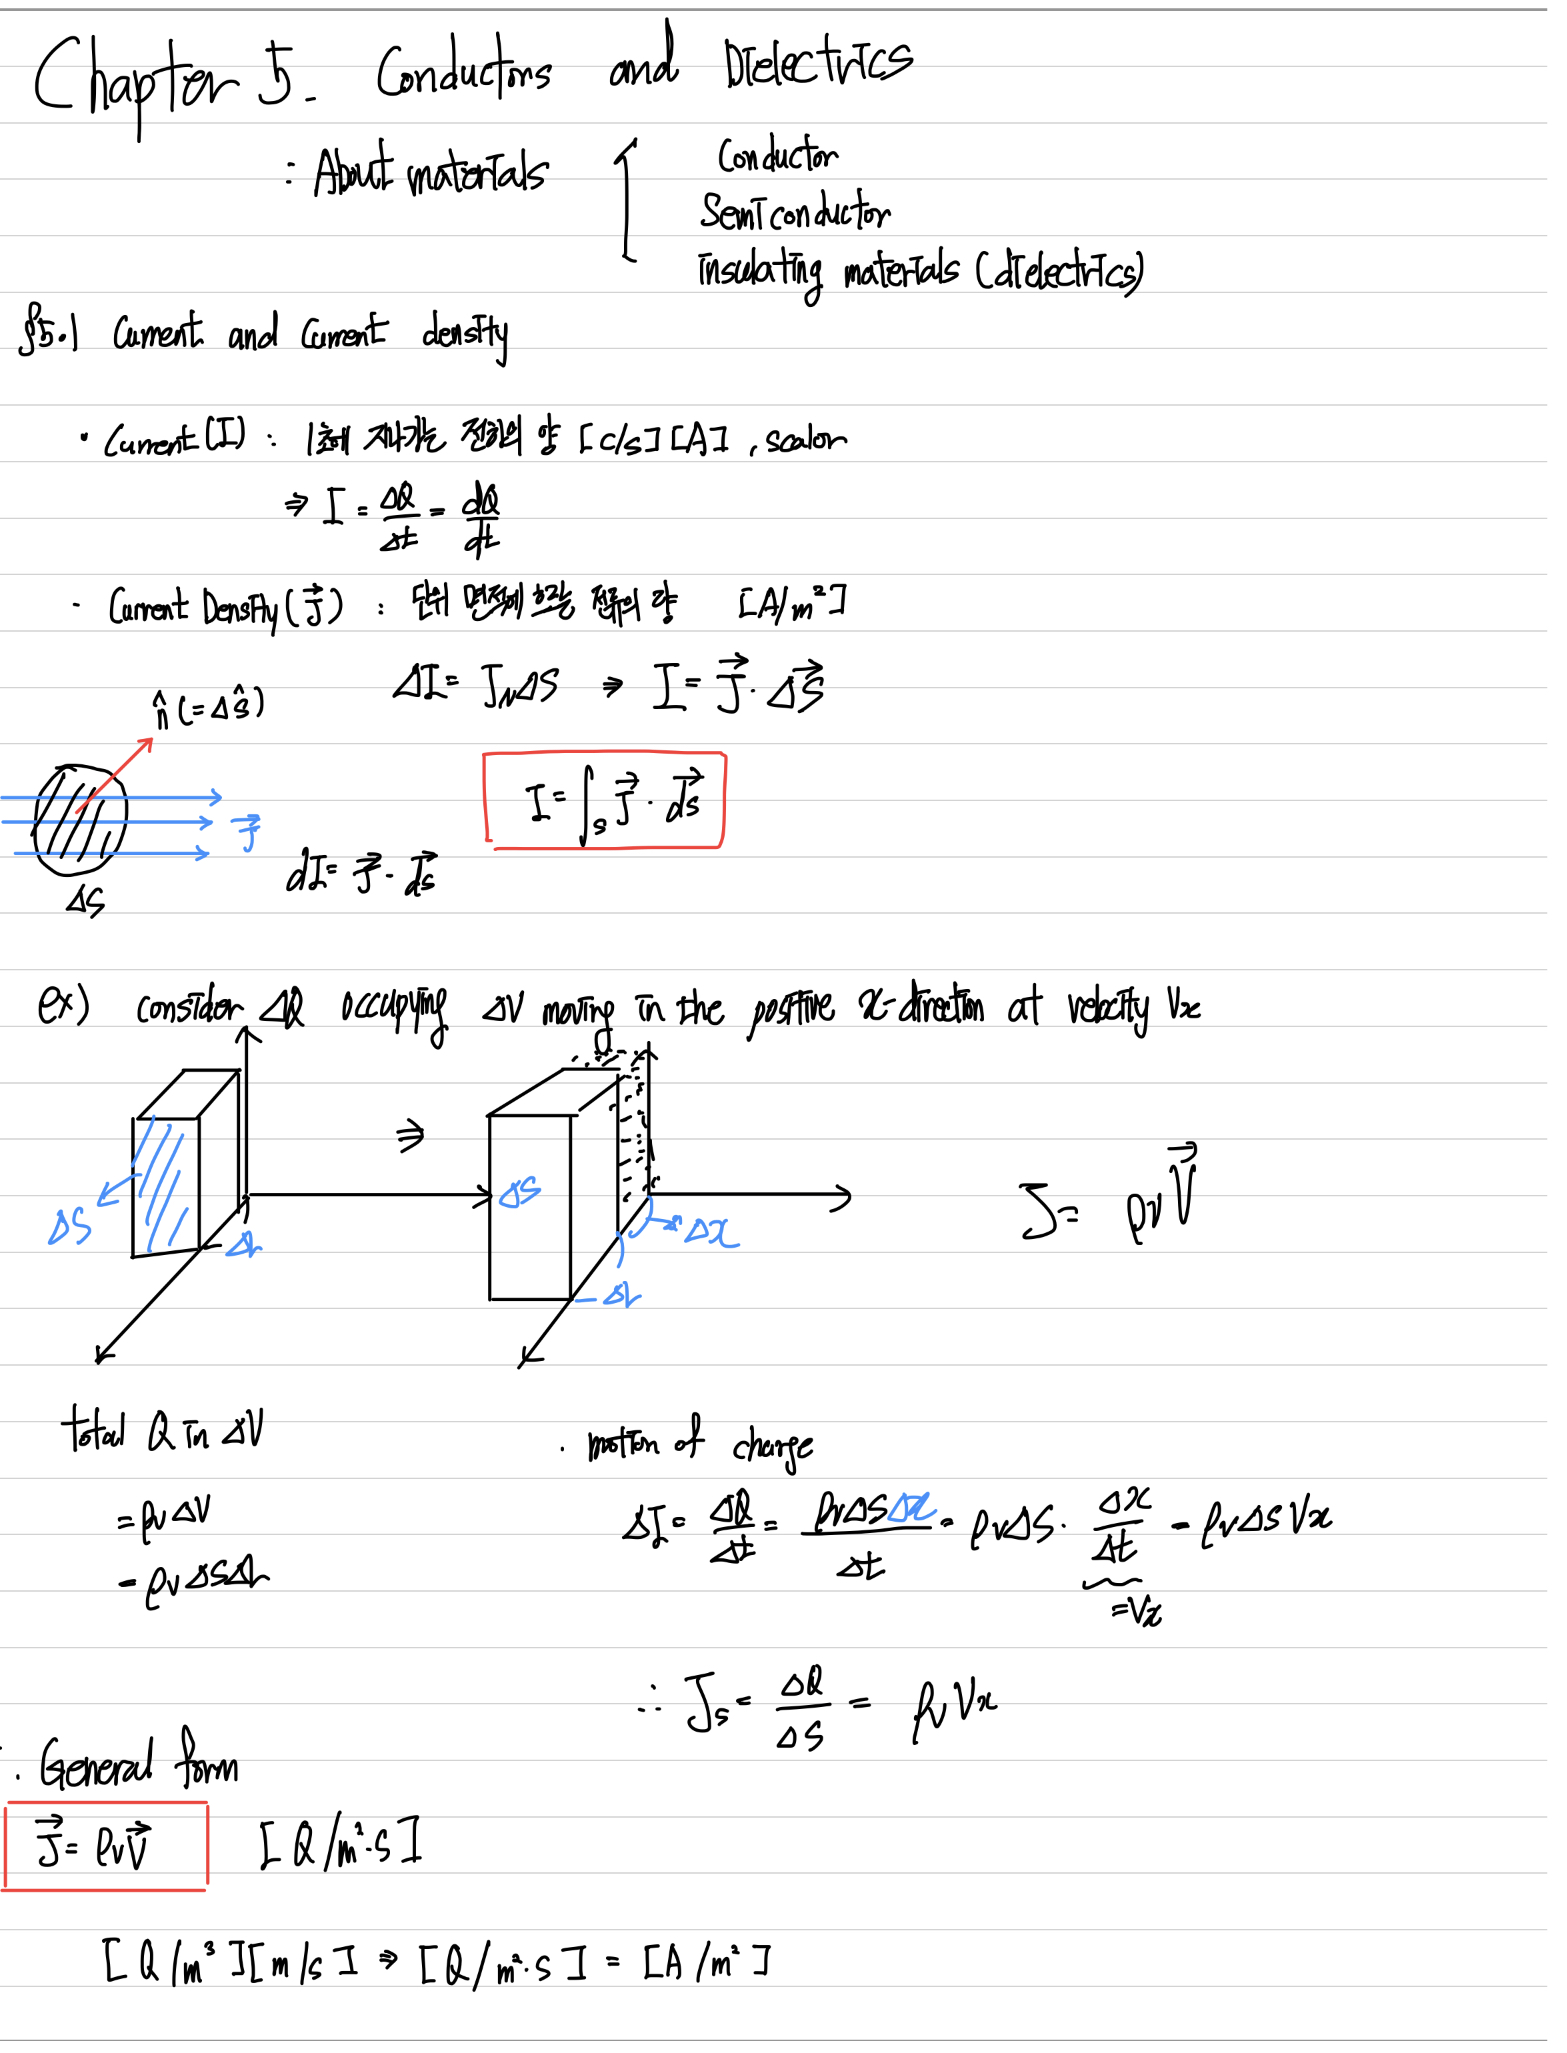 Chapter 5. Conductors and Dielectrics
: About materials
Conductor
Semiconductor
insulating materials (dielectrics)
§5.1 Current and Current density
· Current (I) : 1초에 지나가는 전하의 양 [c/s] [A] , scalor
⇒ I = ΔQ/Δt = dQ/dt
· Current Density (J⃗) : 단위 면적에 흐르는 전류의 량 [A/m²]
ΔI = J_N ΔS ⇒ I = J⃗ · ΔS⃗
n̂ (= Δŝ)
I = ∫_S J⃗ · ds⃗
J⃗
dI = J⃗ · ds⃗
ΔS
ex) consider ΔQ occupying ΔV moving in the positive x-direction at velocity Vx
⇒
ΔS
ΔL
ΔS
Δx
ΔL
J = ρv V⃗
total Q in ΔV
= ρv ΔV
= ρv ΔS ΔL
· motion of charge
ΔI = ΔQ/Δt = ρv ΔS Δx/Δt = ρv ΔS · Δx/Δt = ρv ΔS Vx
= Vx
∴ J_s = ΔQ/ΔS = ρv Vx
· General form
J⃗ = ρv V⃗ [Q/m²·s]
[Q/m³][m/s] ⇒ [Q/m²·s] = [A/m²]